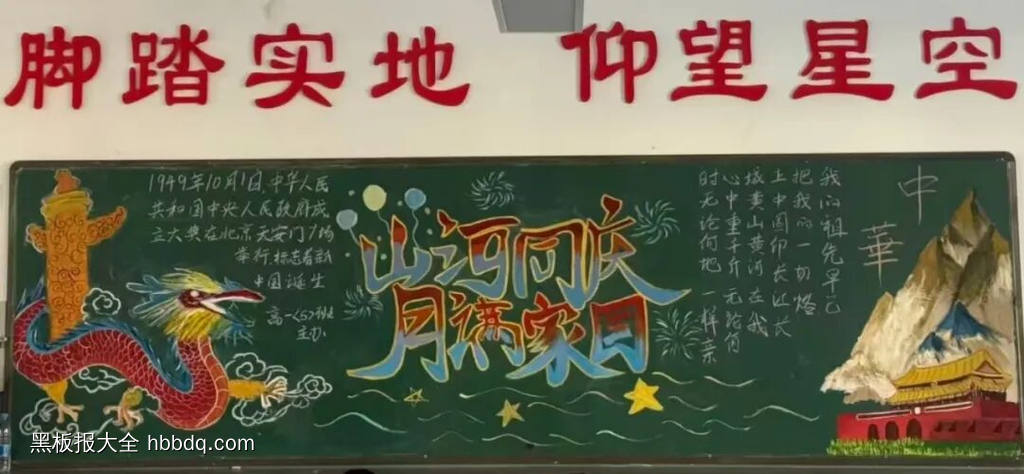 脚踏实地 仰望星空
1949年10月1日,中华人民
共和国中央人民政府成
立大典在北京天安门广场
举行标志着新
中国诞生
高一(5)班
主办
山河同庆
月满家国
我的祖先早已
把我的一切烙
上中国印长江长
城黄山黄河在我
心中重千斤无论何
时无论何地一样亲
中華
黑板报大全 hbbdq.com